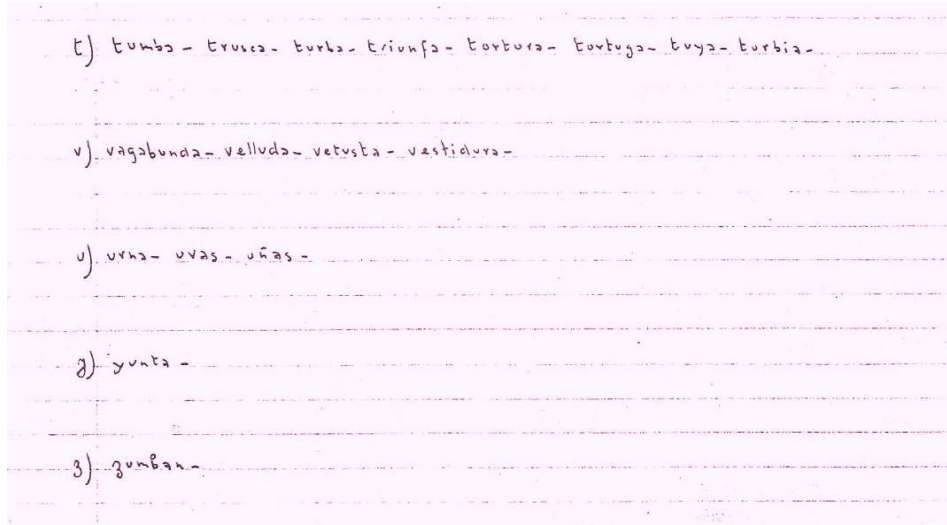 t) tumba - trusca - turba - triunfa - tortura - tortuga - tuya - turbia -
v) vagabunda - velluda - vetusta - vestidura -
u) urna - uvas - uñas -
y) yunta -
z) zumban -